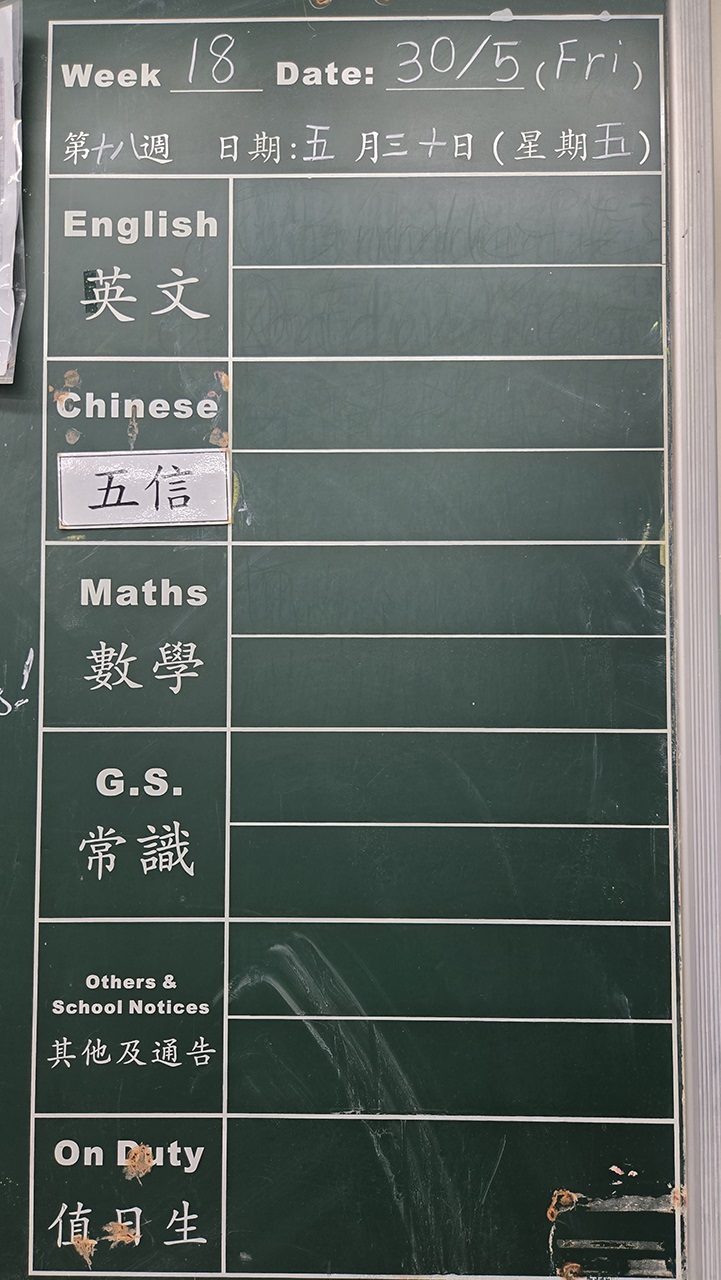 Week 18 Date: 30/5 (Fri)
第十八週 日期:五月三十日(星期五)
English
英文
Chinese
五信
Maths
數學
G.S.
常識
Others &
School Notices
其他及通告
On Duty
值日生